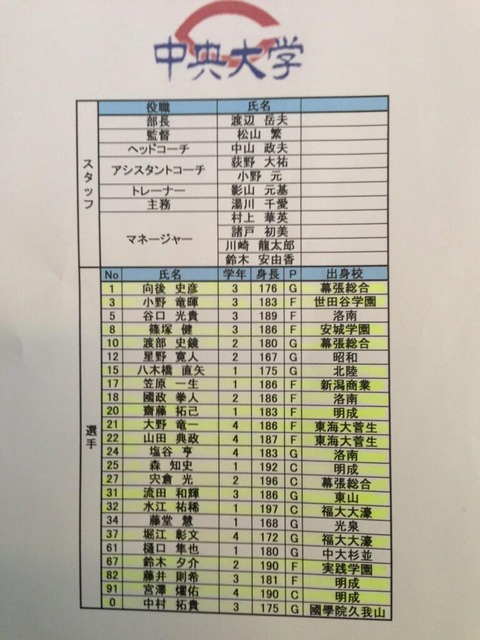 中央大学
役職 氏名
スタッフ
部長 渡辺 岳夫
監督 松山 繁
ヘッドコーチ 中山 政夫
アシスタントコーチ 荻野 大祐
小野 元
トレーナー 影山 元基
主務 湯川 千愛
マネージャー 村上 華英
諸戸 初美
川崎 龍太郎
鈴木 安由香
選手
No 氏名 学年 身長 P 出身校
1 向後 史彦 3 176 G 幕張総合
3 小野 竜暉 3 183 F 世田谷学園
5 谷口 光貴 3 189 F 洛南
8 篠塚 健 3 186 F 安城学園
10 渡部 史鏡 2 180 G 幕張総合
12 星野 寛人 2 167 G 昭和
15 八木橋 直矢 1 175 G 北陸
17 笠原 一生 1 186 F 新潟商業
18 國政 拳人 2 186 F 洛南
20 齋藤 拓己 1 183 F 明成
21 大野 竜一 4 186 F 東海大菅生
22 山田 典政 4 187 F 東海大菅生
24 塩谷 亨 4 183 G 洛南
25 森 知史 1 192 C 明成
27 宍倉 光 2 196 C 幕張総合
31 流田 和輝 3 186 G 東山
32 水江 祐稀 1 197 C 福大大濠
34 藤堂 慧 1 168 G 光泉
37 堀江 彰文 4 172 G 福大大濠
61 樋口 隼也 1 180 G 中大杉並
67 鈴木 夕介 2 190 F 実践学園
82 藤井 則希 3 181 F 明成
91 宮澤 燿佑 4 190 C 明成
0 中村 拓貴 3 175 G 國學院久我山